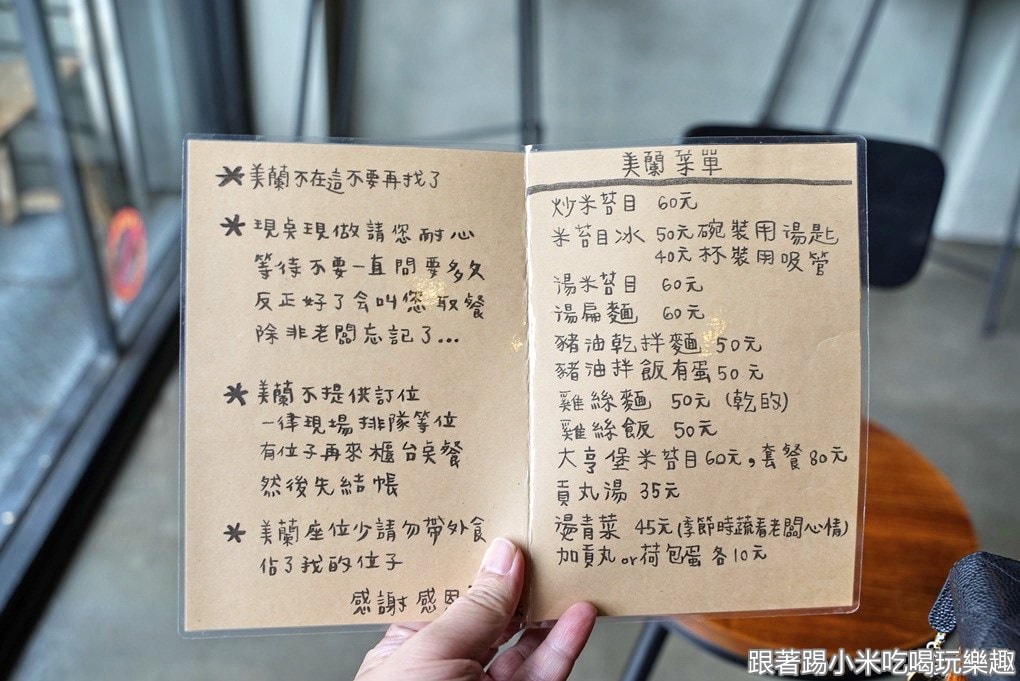 ＊美蘭不在這不要再找了
＊現桌現做請您耐心
等待不要一直問要多久
反正好了会叫您取餐
除非老闆忘記了...
＊美蘭不提供訂位
一律現場排隊等位
有位子再來櫃台桌餐
然後先結帳
＊美蘭座位少請勿帶外食
佔了我的位子
感謝感恩
美蘭菜單
炒米苔目 60元
米苔目冰 50元碗裝用湯匙
40元杯裝用吸管
湯米苔目 60元
湯扁麵 60元
豬油乾拌麵 50元
豬油拌飯有蛋50元
雞絲麵 50元 (乾的)
雞絲飯 50元
大亨堡米苔目60元,套餐80元
貢丸湯 35元
燙青菜 45元(季節時蔬看老闆心情)
加貢丸or荷包蛋 各10元
跟著踢小米吃喝玩樂趣